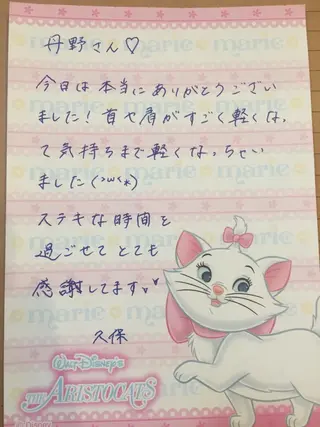 marie marie
丹野さん♡
今日は本当にありがとうござい
ました！首や肩がすごく軽くなっ
て気持ちまで軽くなっちゃい
ました(>ω<*)
ステキな時間を
過ごせてとても
感謝してます♡♡
久保
WALT DISNEY'S
THE ARISTOCATS
©Disney